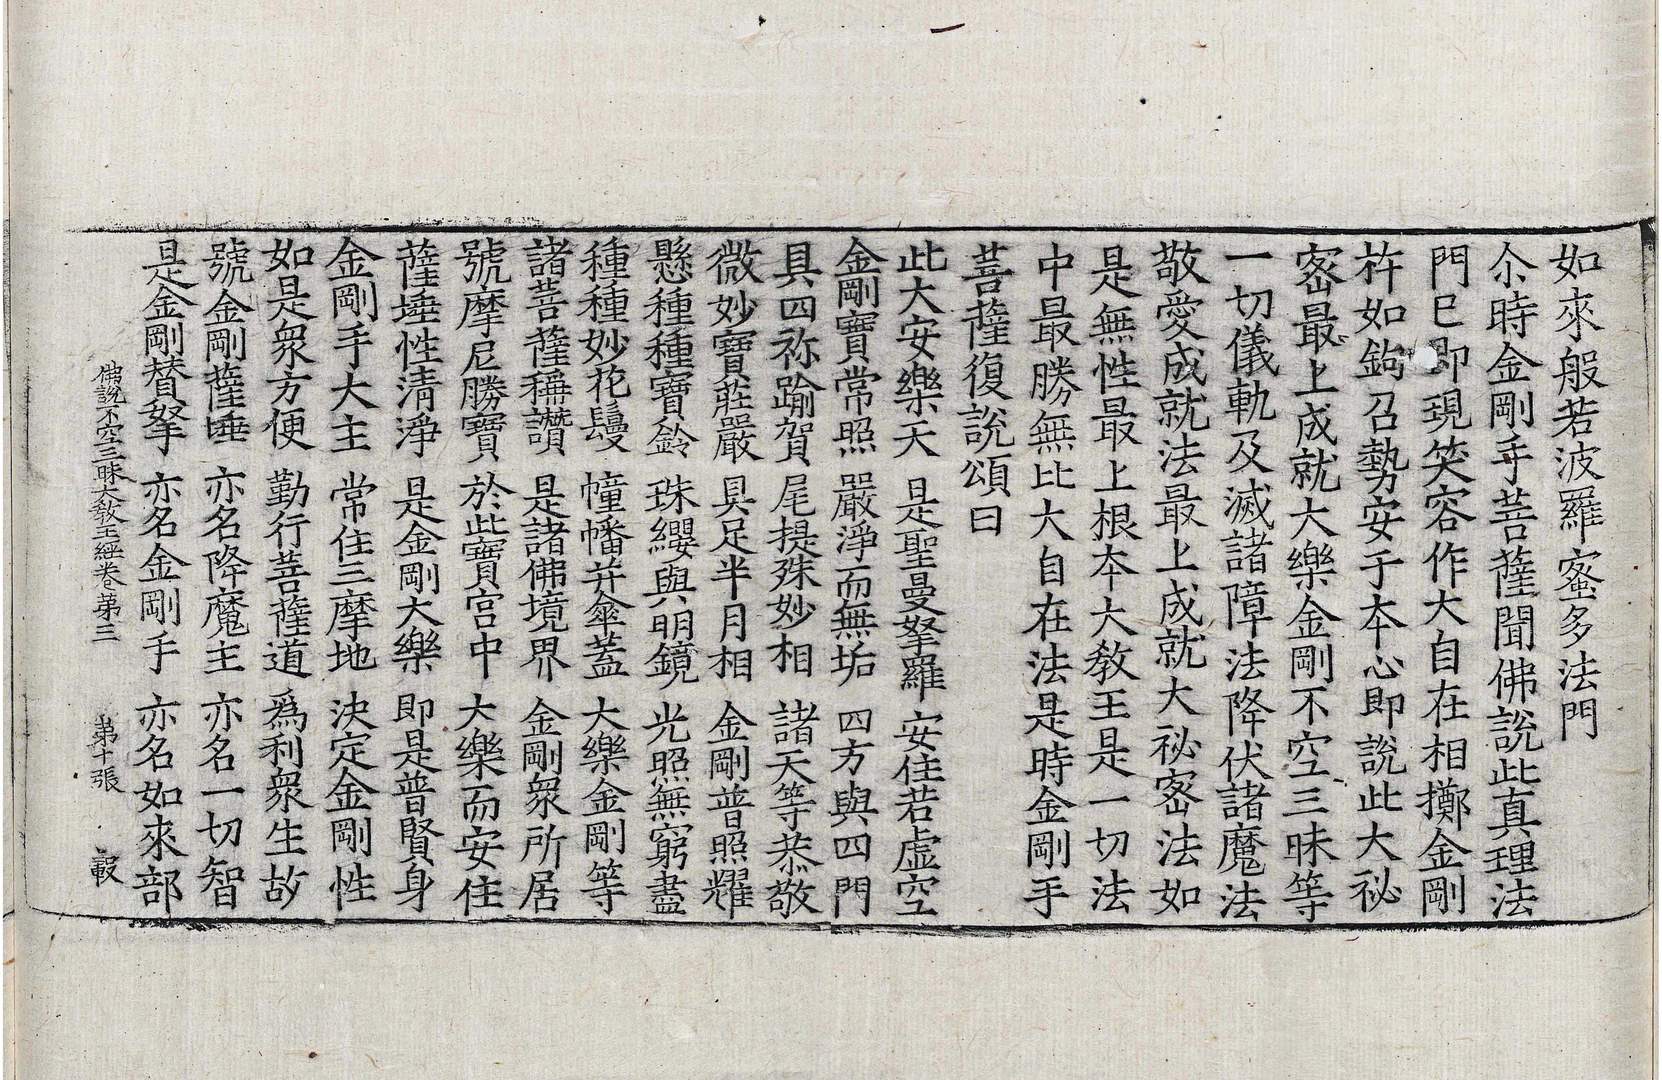 如來般若波羅蜜多法門
尒時金剛手菩薩聞佛說此真理法
門已即現笑容作大自在相擲金剛
杵如鉤召勢安于本心即說此大祕
密最上成就大樂金剛不空三昧等
一切儀軌及滅諸障法降伏諸魔法
敬愛成就法最上成就大祕密法如
是無性最上根本大教王是一切法
中最勝無比大自在法是時金剛手
菩薩復說頌曰
此大安樂天　是聖曼拏羅　安住若虛空
金剛寶常照　嚴淨而無垢　四方與四門
具四祢踰賀　尾提殊妙相　諸天等恭敬
微妙寶莊嚴　具足半月相　金剛普照耀
懸種種寶鈴　珠纓與明鏡　光照無窮盡
種種妙花鬘　幢幡并傘蓋　大樂金剛等
諸菩薩稱讚　是諸佛境界　金剛衆所居
號摩尼勝寶　於此寶宮中　大樂而安住
薩埵性清淨　是金剛大樂　即是普賢身
金剛手大主　常住三摩地　決定金剛性
如是衆方便　勤行菩薩道　爲利衆生故
號金剛薩埵　亦名降魔主　亦名一切智
是金剛賛拏　亦名金剛手　亦名如來部
佛說不空三昧大教王經卷第三　第十張　轂